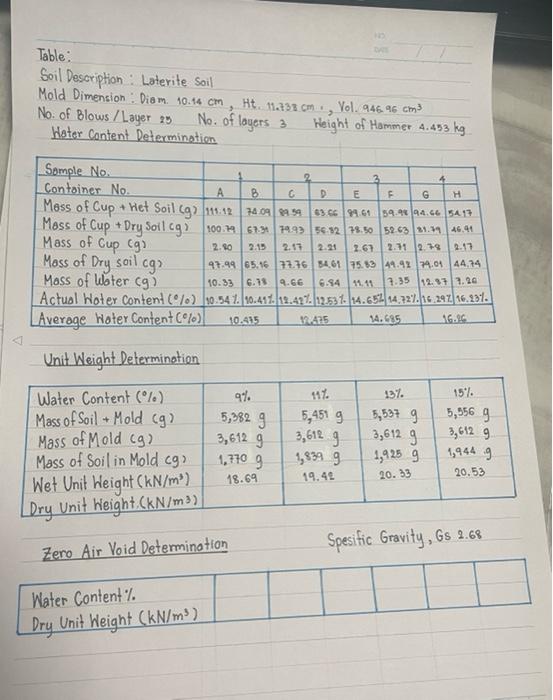 NO.
DATE / /
Table:
Soil Description : Laterite Soil
Mold Dimension : Diam. 10.14 cm, Ht. 11.738 cm., Vol. 946.96 cm³
No. of Blows / Layer 25 No. of layers 3 Weight of Hammer 4.453 kg
Water Content Determination
Sample No. 1 2 3 4
Container No. A B C D E F G H
Mass of Cup + Wet Soil (g) 111.12 74.09 89.59 63.66 89.61 59.98 94.66 54.17
Mass of Cup + Dry Soil (g) 100.79 67.31 79.93 56.82 78.50 52.63 81.79 46.91
Mass of Cup (g) 2.80 2.15 2.17 2.21 2.67 2.71 2.78 2.17
Mass of Dry Soil (g) 97.99 65.16 77.76 54.61 75.83 49.92 79.01 44.74
Mass of Water (g) 10.33 6.78 9.66 6.84 11.11 7.35 12.87 7.26
Actual Water Content (%) 10.54% 10.41% 12.42% 12.53% 14.65% 14.72% 16.29% 16.23%
Average Water Content (%) 10.475 12.475 14.685 16.26
Unit Weight Determination
Water Content (%) 9% 11% 13% 15%
Mass of Soil + Mold (g) 5,382 g 5,451 g 5,537 g 5,556 g
Mass of Mold (g) 3,612 g 3,612 g 3,612 g 3,612 g
Mass of Soil in Mold (g) 1,770 g 1,839 g 1,925 g 1,944 g
Wet Unit Weight (kN/m³) 18.69 19.42 20.33 20.53
Dry Unit Weight (kN/m³)
Zero Air Void Determination Spesific Gravity, Gs 2.68
Water Content %
Dry Unit Weight (kN/m³)